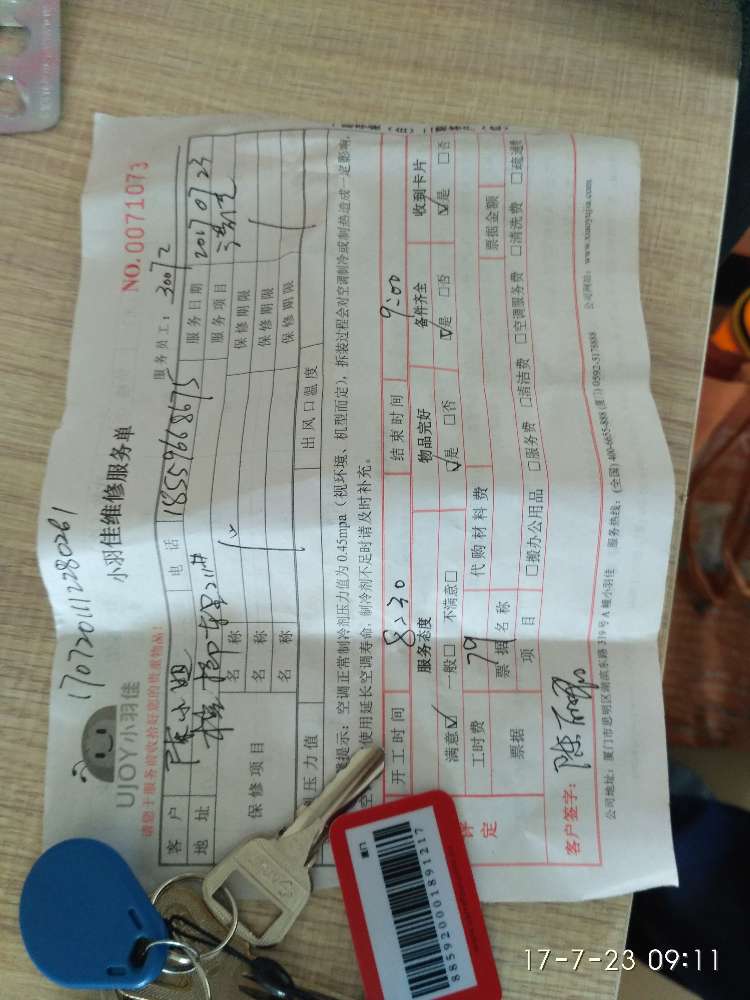 1707201112280261
UJOY小羽佳
小羽佳维修服务单
NO.0071073
请您于服务前收拾好您的贵重物品!
服务员工: 30072
客户 陈小姐 电话 18559668675 服务日期 2017 07 23
地址 服务项目
保修项目 名称 保修期限
名称 保修期限
名称 保修期限
压力值 出风口温度
提示: 空调正常制冷剂压力值为0.45mpa (视环境、机型而定), 拆装过程会对空调制冷或制热造成一定影响,
使用延长空调寿命, 制冷剂不足时请及时补充。
开工时间 8:30 结束时间 9:00
服务态度 物品完好 备件齐全 收到卡片
满意☑ 一般□ 不满意□ ☑是 □否 ☑是 □否 ☑是 □否
工时费 79 代购材料费
票据 票据名称 票据金额
项目 □搬办公用品 □服务费 □清洁费 □空调服务费 □清洗费
评定
客户签字:
公司地址: 厦门市思明区湖滨东路319号A幢小羽佳 服务热线: (全国)400-6655-888 (厦门)0592-3178888 公司网站: www.xiaoyujia.com
8859200001891217
17-7-23 09:11